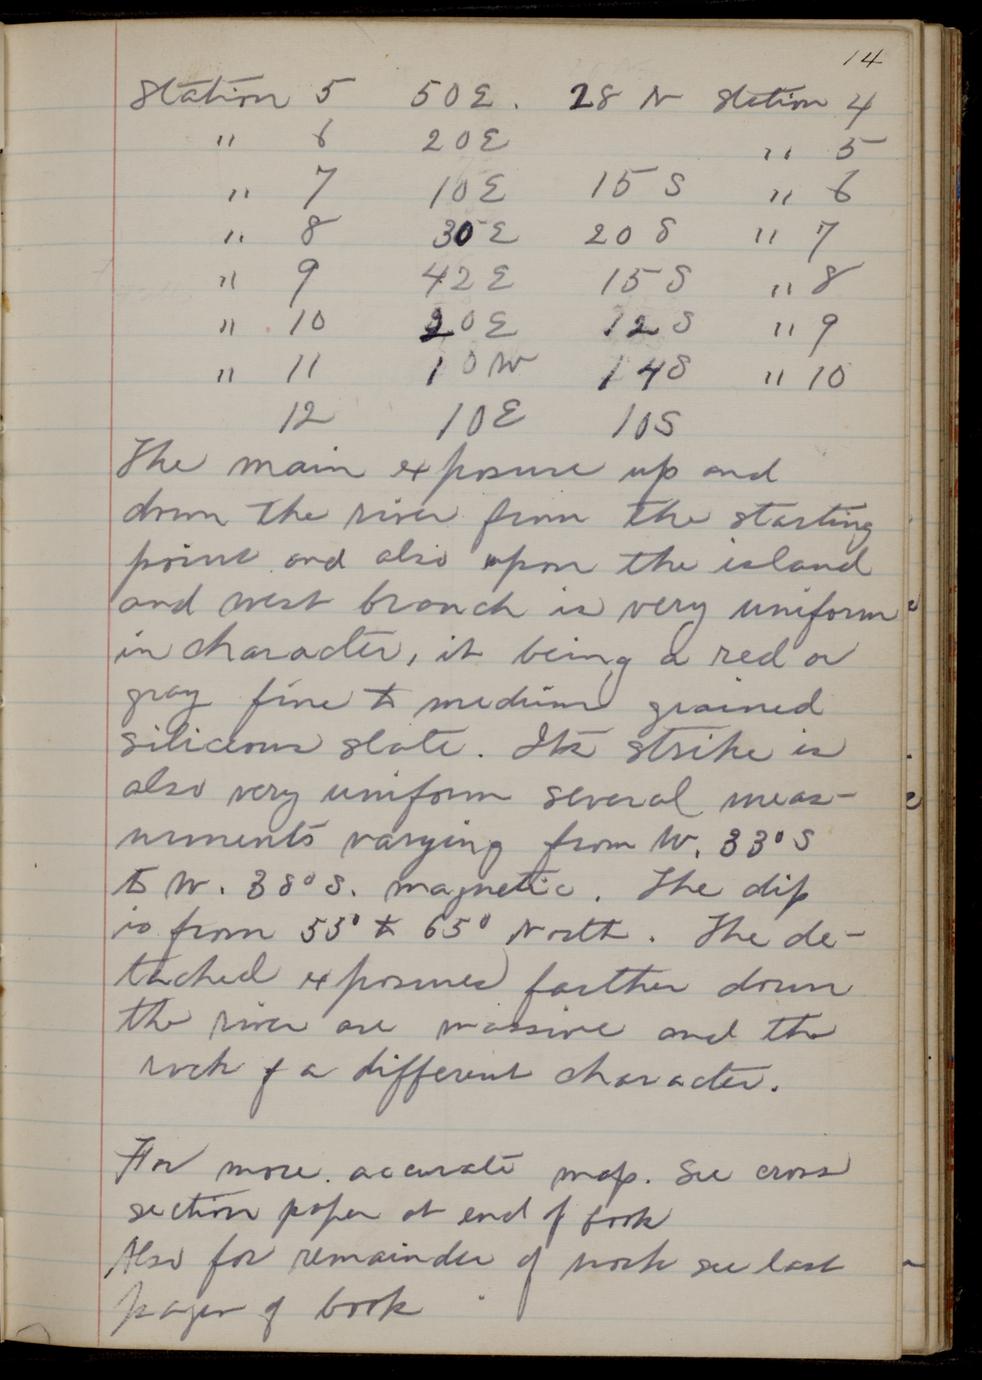 14
Station 5 50 E. 28 N Station 4
" 6 20 E " 5
" 7 10 E 15 S " 6
" 8 30 E 20 S " 7
" 9 42 E 15 S " 8
" 10 20 E 12 S " 9
" 11 10 W 14 S " 10
12 10 E 10 S
The main exposure up and
down the river from the starting
point and also upon the island
and west branch is very uniform
in character, it being a red or
gray fine to medium grained
silicious slate. Its strike is
also very uniform several meas-
urments varying from W. 33° S
to W. 38° S. magnetic. The dip
is from 55° to 65° North. The de-
tached exposures farther down
the river are massive and the
rock of a different character.
For more accurate map. See cross
section paper at end of book
Also for remainder of work see last
pages of book